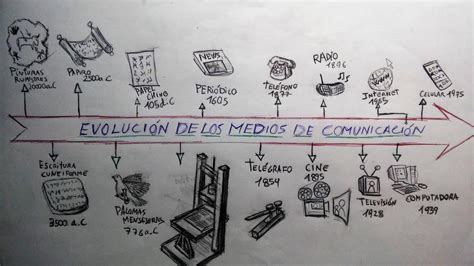 PINTURAS
RUPESTRES
20000 a.C
PAPIRO
2500 a.C
PAPEL
CHINO
105 d.C
NEWS
PERIÓDICO
1605
TELÉFONO
1877
RADIO
1896
INTERNET
1965
CELULAR 1975
EVOLUCIÓN DE LOS MEDIOS DE COMUNICACIÓN
ESCRITURA
CUNEIFORME
3500 a.C
PALOMAS
MENSAJERAS
776 a.C
TELÉGRAFO
1854
CINE
1895
TELEVISIÓN
1928
COMPUTADORA
1939